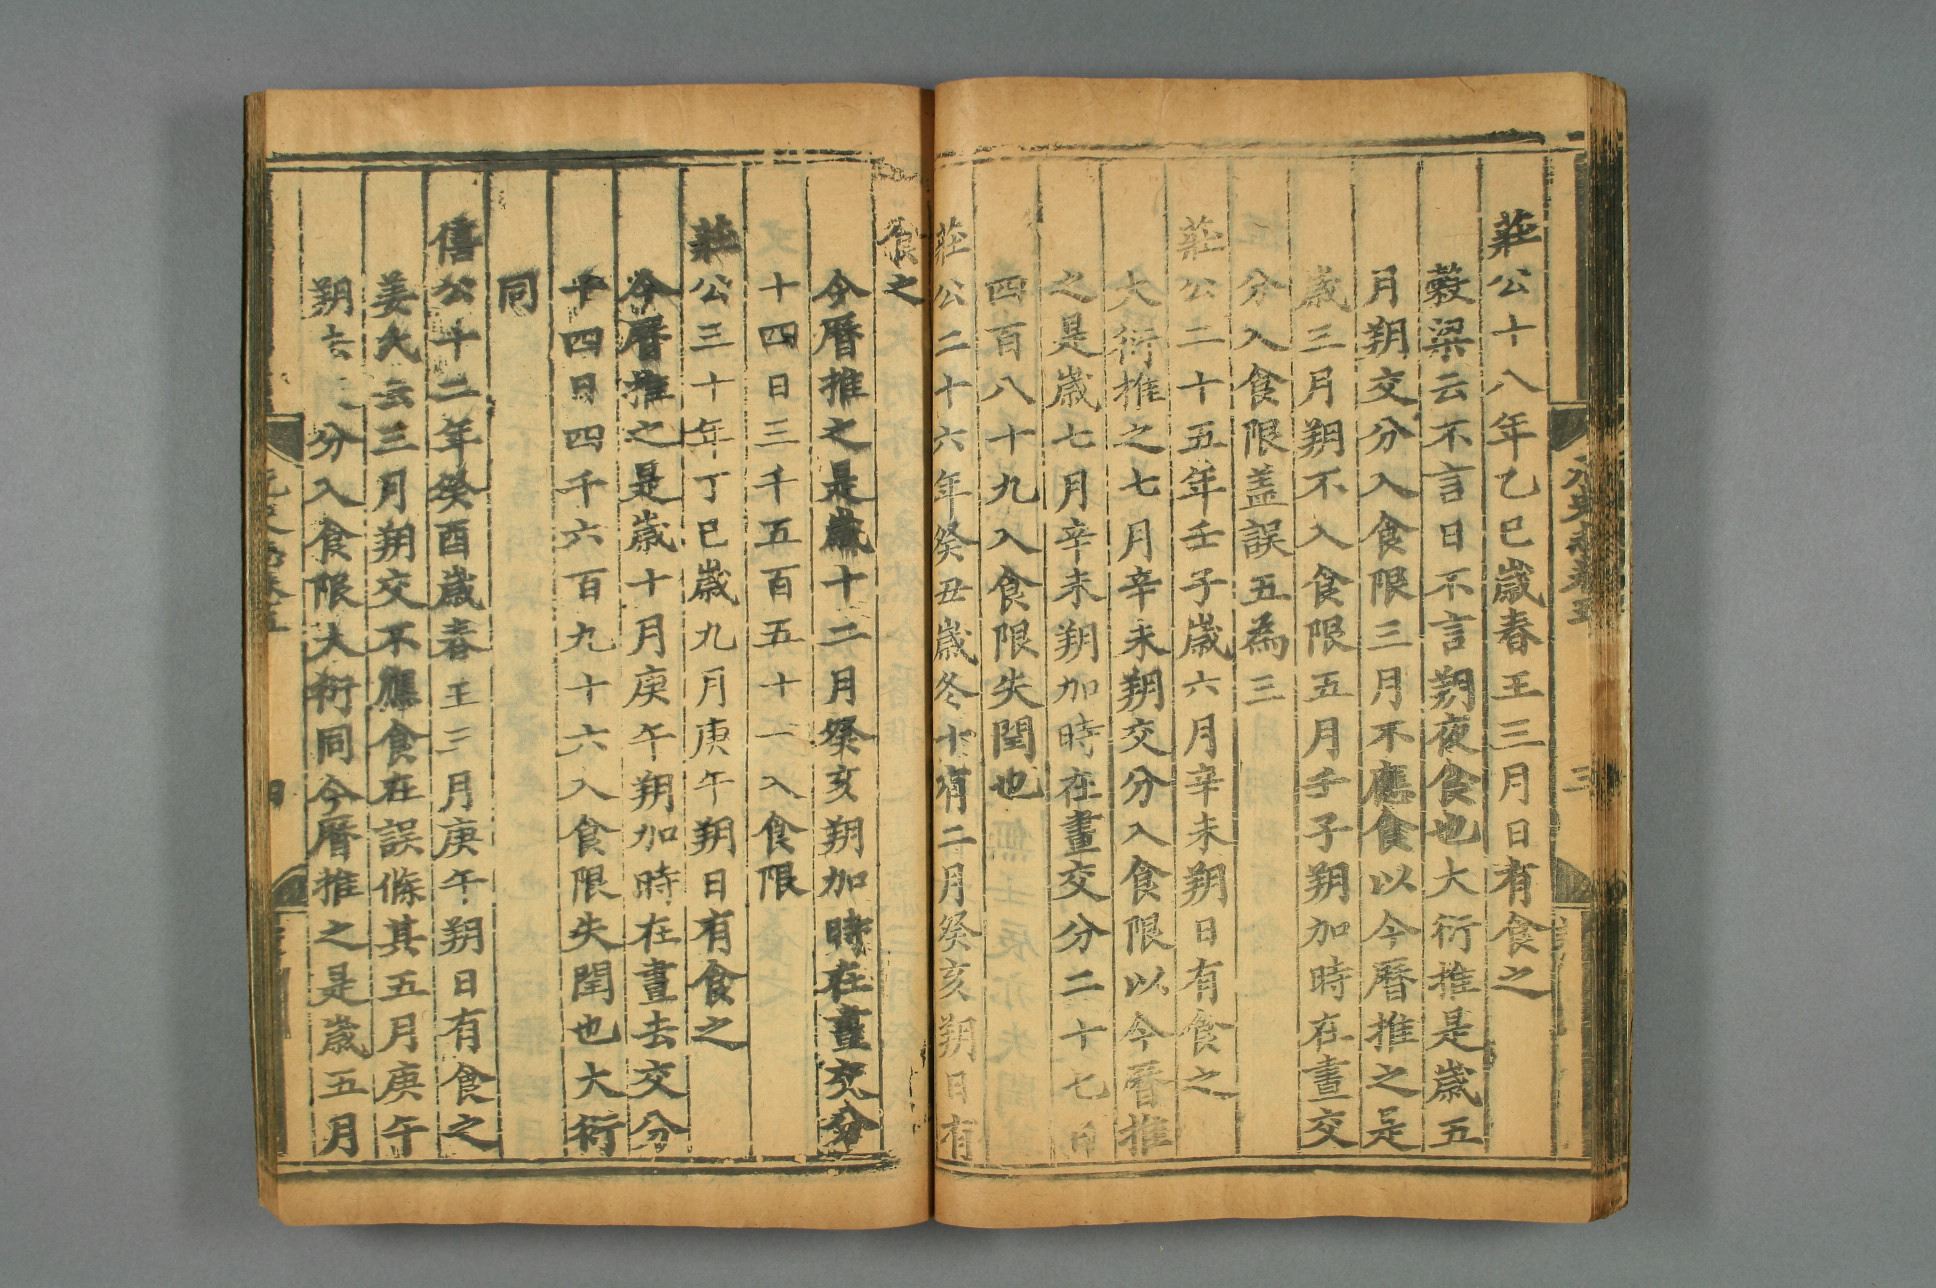 莊公十八年乙巳歲春王三月日有食之
穀梁云不言日不言朔夜食也大衍推是歲五
月朔交分入食限三月不應食以今曆推之是
歲三月朔不入食限五月壬子朔加時在晝交
分入食限盖誤五為三
莊公二十五年壬子歲六月辛未朔日有食之
大衍推之七月辛未朔交分入食限以今曆推
之是歲七月辛未朔加時在晝交分二十七日
四百八十九入食限失閏也
莊公二十六年癸丑歲冬十有二月癸亥朔日有
食之
今曆推之是歲十二月癸亥朔加時在晝交分
十四日三千五百五十一入食限
莊公三十年丁巳歲九月庚午朔日有食之
今曆推之是歲十月庚午朔加時在晝去交分
十四日四千六百九十六入食限失閏也大衍
同
僖公十二年癸酉歲春王三月庚午朔日有食之
姜氏云三月朔交不應食在誤條其五月庚午
朔去交分入食限大衍同今曆推之是歲五月